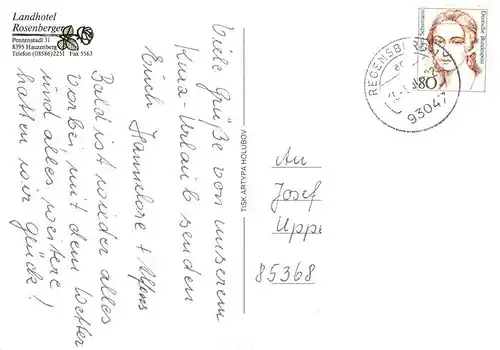 Landhotel
Rosenberger
Penzenstadl 31
8395 Hauzenberg
Telefon (08586)2251 Fax 5563
Viele Grüße von unserem
Kurz-Urlaub senden
Euch Hannelore + Alfons
Bald ist wieder alles
vorbei, mit dem Wetter
und alles weitere
hatten wir Glück!
TISK ARTYPA HOLUBOV
An
Josef
Uppe
85368
REGENSBURG
93047
80
Deutsche Bundespost